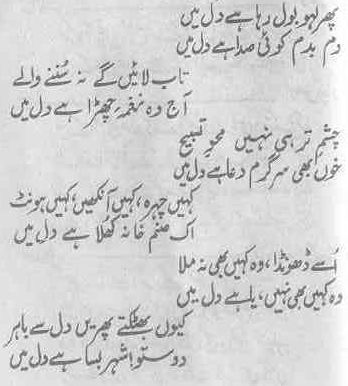 پھر لہو بول رہا ہے دل میں
دم بدم کوئی صدا ہے دل میں
تاب لائیں گے نہ سننے والے
آج وہ نغمہ چھڑا ہے دل میں
چشم تر ہی نہیں محوِ تسبیح
خوں بھی سرگرم دعا ہے دل میں
کہیں چہرہ، کہیں آنکھیں، کہیں ہونٹ
اک صنم خانہ کھلا ہے دل میں
اُسے ڈھونڈا، وہ کہیں بھی نہ ملا
وہ کہیں بھی نہیں، یا ہے دل میں
کیوں بھٹکتے پھریں دل سے باہر
دوستو! شہر بسا ہے دل میں